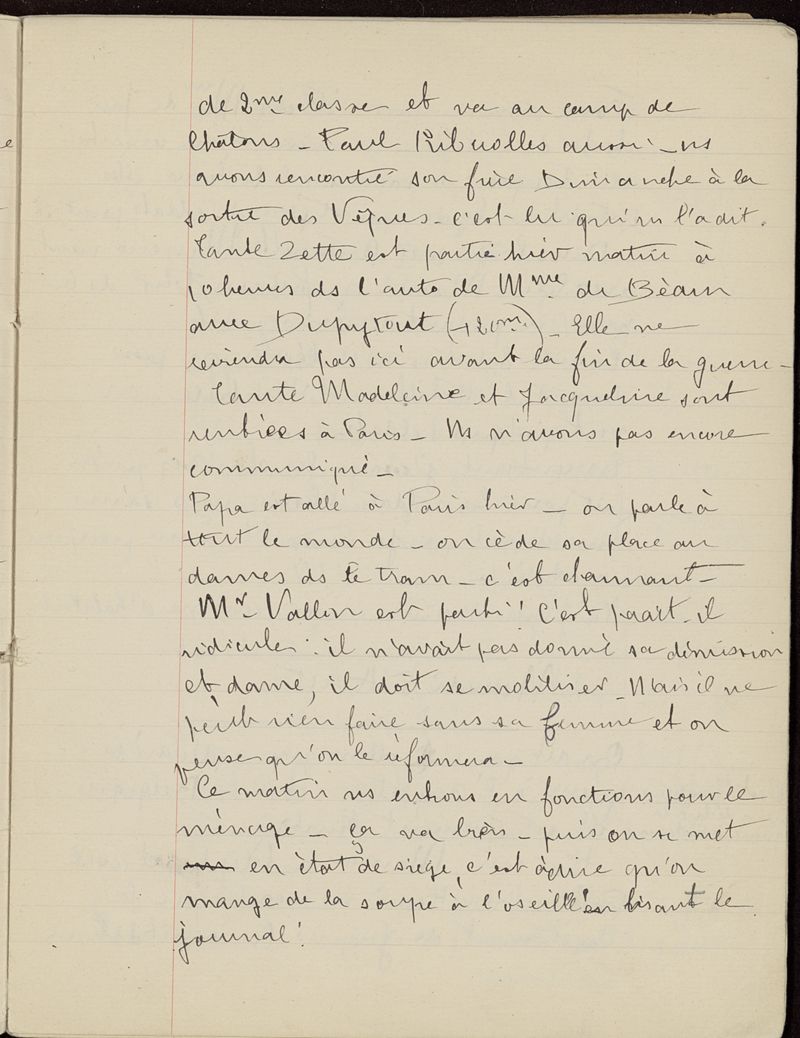 de 2me classe et va au camp de
Châlons - Paul Ribuolles aussi - ns
avons rencontré son frère Dimanche à la
sortie des Vêpres - c'est lui qui ns l'a dit.
Tante Zette est partie hier matin à
10 heures ds l'auto de Mme de Béarn
avec Dupytout (- 120m.) - Elle ne
reviendra pas ici avant la fin de la guerre -
Tante Madeleine et Jacqueline sont
rentrées à Paris - Ns n'avons pas encore
communiqué -
Papa est allé à Paris hier - on parle à
tout le monde - on cède sa place au
dames ds le tram - c'est charmant -
Mr Vallon est parti ! C'est parait-il
ridicule : il n'avait pas donné sa démission
et dame, il doit se mobiliser - Mais il ne
peut rien faire sans sa femme et on
pense qu'on le réformera -
Ce matin ns entrons en fonctions pour le
ménage - ça va bien - puis on se met
en état de siège, c'est à dire qu'on
mange de la soupe à l'oseille en lisant le
journal !